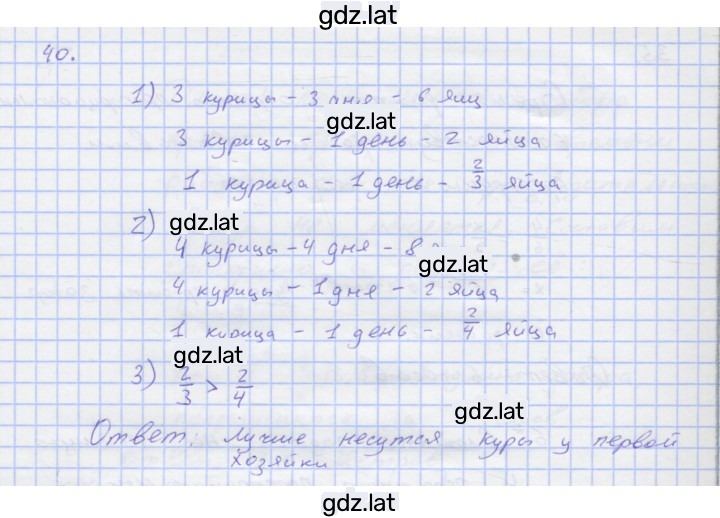 gdz.lat
40.
1) 3 курицы - 3 дня - 6 яиц
gdz.lat
3 курицы - 1 день - 2 яйца
1 курица - 1 день - 2/3 яйца
2) gdz.lat
4 курицы - 4 дня - 8
gdz.lat
4 курицы - 1 дня - 2 яйца
1 курица - 1 день - 2/4 яйца
gdz.lat
3) 2/3 > 2/4
gdz.lat
Ответ: лучше несутся куры у первой
хозяйки
gdz.lat